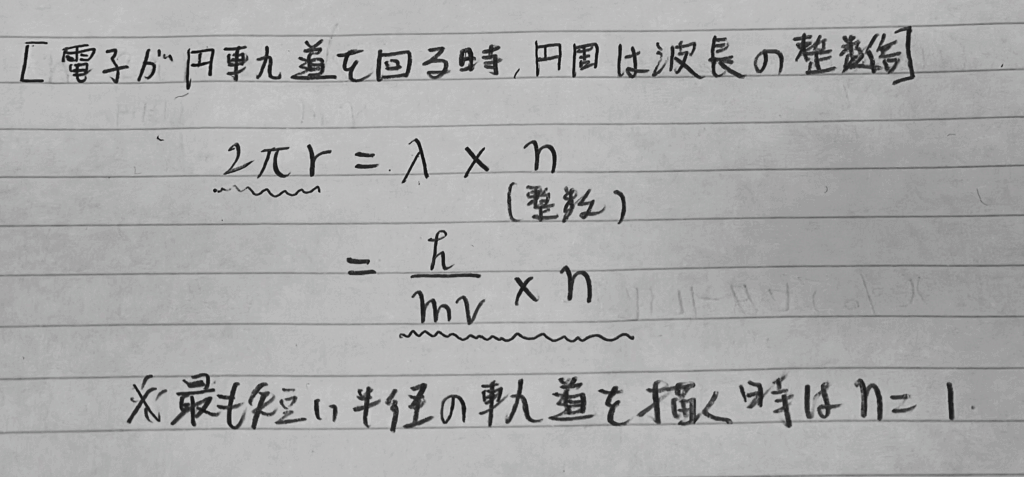 [電子が円軌道を回る時,円周は波長の整数倍]
2πr = λ × n
(整数)
= ℏ/mv × n
※最も短い半径の軌道を描く時はn=1.